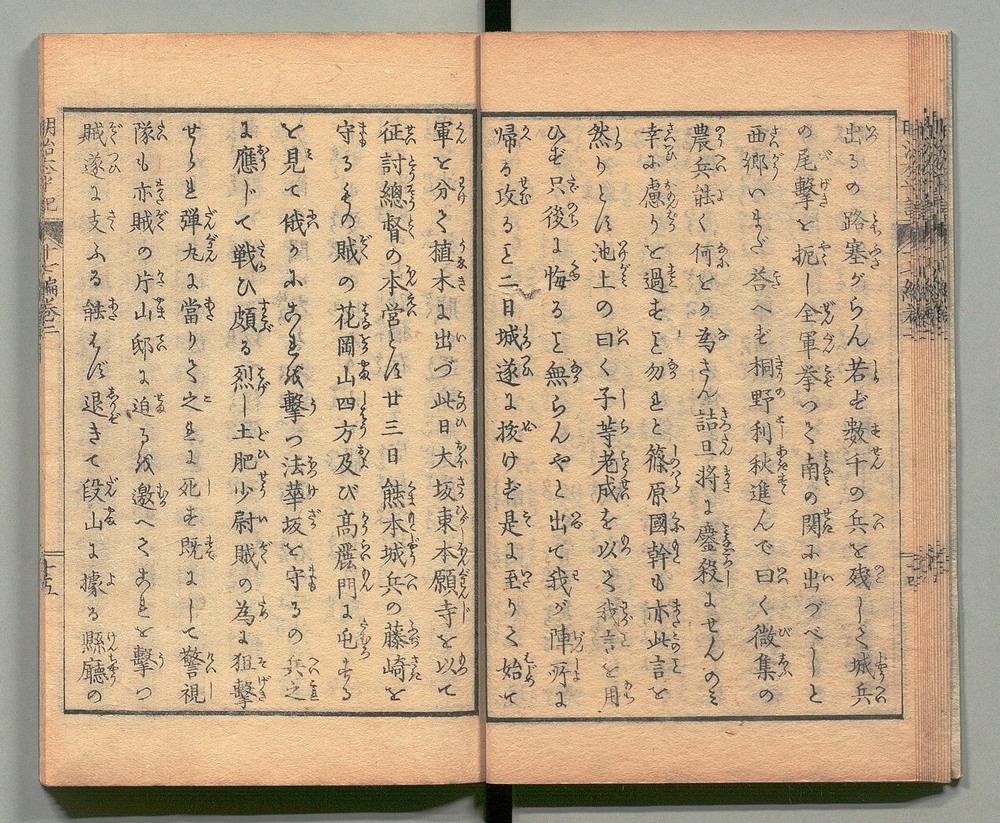 出るの路塞がらん若ず数千の兵を残して城兵
の尾撃を扼し全軍挙つて南の関に出づべしと
西郷いまだ答へず桐野利秋進んで曰く微集の
農兵能く何をか為さん詰旦将に鏖殺ませんのミ
幸に慮りを過すこと勿れと篠原國幹も亦此言を
然りとす池上の曰く子等老成を以て我言を用
ひず只後に悔ること無らんやと出て我が陣所に
帰る攻ること二日城遂に抜けず是に至りて始て
軍を分て植木に出づ此日大坂東本願寺を以て
征討總督の本営とす廿三日熊本城兵の藤崎を
守るもの賊の花岡山四方及び高麗門に屯する
を見て俄かにこれを撃つ法華坂を守るの兵之
に應じて戦ひ頗る烈し土肥少尉賊の為に狙撃
せられ弾丸に當りて之れに死す既にして警視
隊も亦賊の片山邸に迫るを邀へてこれを撃つ
賊遂に支ふる能はず退きて段山に據る縣廳の
明治太平記
十七編巻二
十五